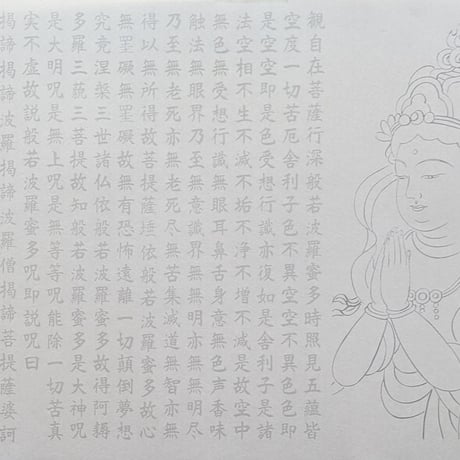 観自在菩薩行深般若波羅蜜多時照見五蘊皆
空度一切苦厄舎利子色不異空空不異色色即
是空空即是色受想行識亦復如是舎利子是諸
法空相不生不滅不垢不浄不増不減是故空中
無色無受想行識無眼耳鼻舌身意無色声香味
触法無眼界乃至無意識界無無明亦無無明尽
乃至無老死亦無老死尽無苦集滅道無智亦無
得以無所得故菩提薩埵依般若波羅蜜多故心
無罣礙無罣礙故無有恐怖遠離一切顛倒夢想
究竟涅槃三世諸仏依般若波羅蜜多故得阿耨
多羅三藐三菩提故知般若波羅蜜多是大神呪
是大明呪是無上呪是無等等呪能除一切苦真
実不虚故説般若波羅蜜多呪即説呪曰
掲諦掲諦波羅掲諦波羅僧掲諦菩提薩婆訶